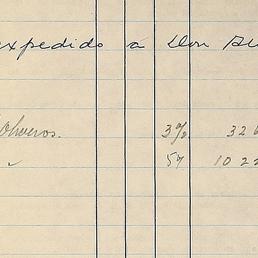 expedido a Don
Oliveros. 3% 32
" 5% 10 22